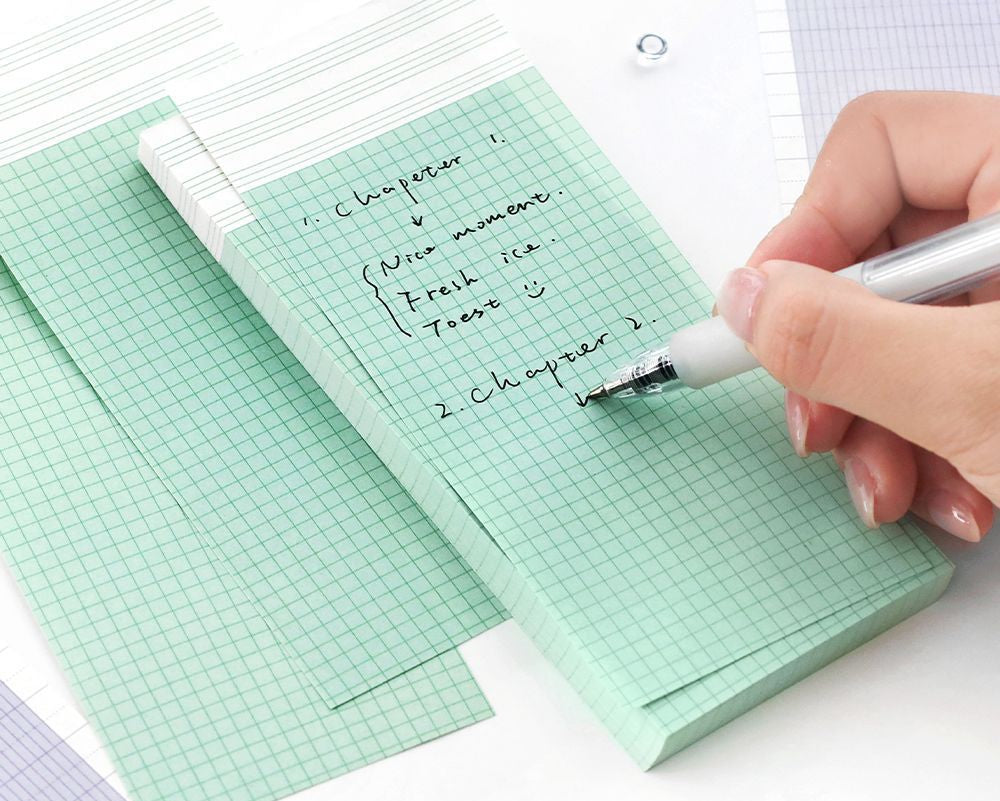 1. Chapeter 1.
↓
{ Nice moment.
Fresh ice.
Toest :)
2. Chapter 2.
↓